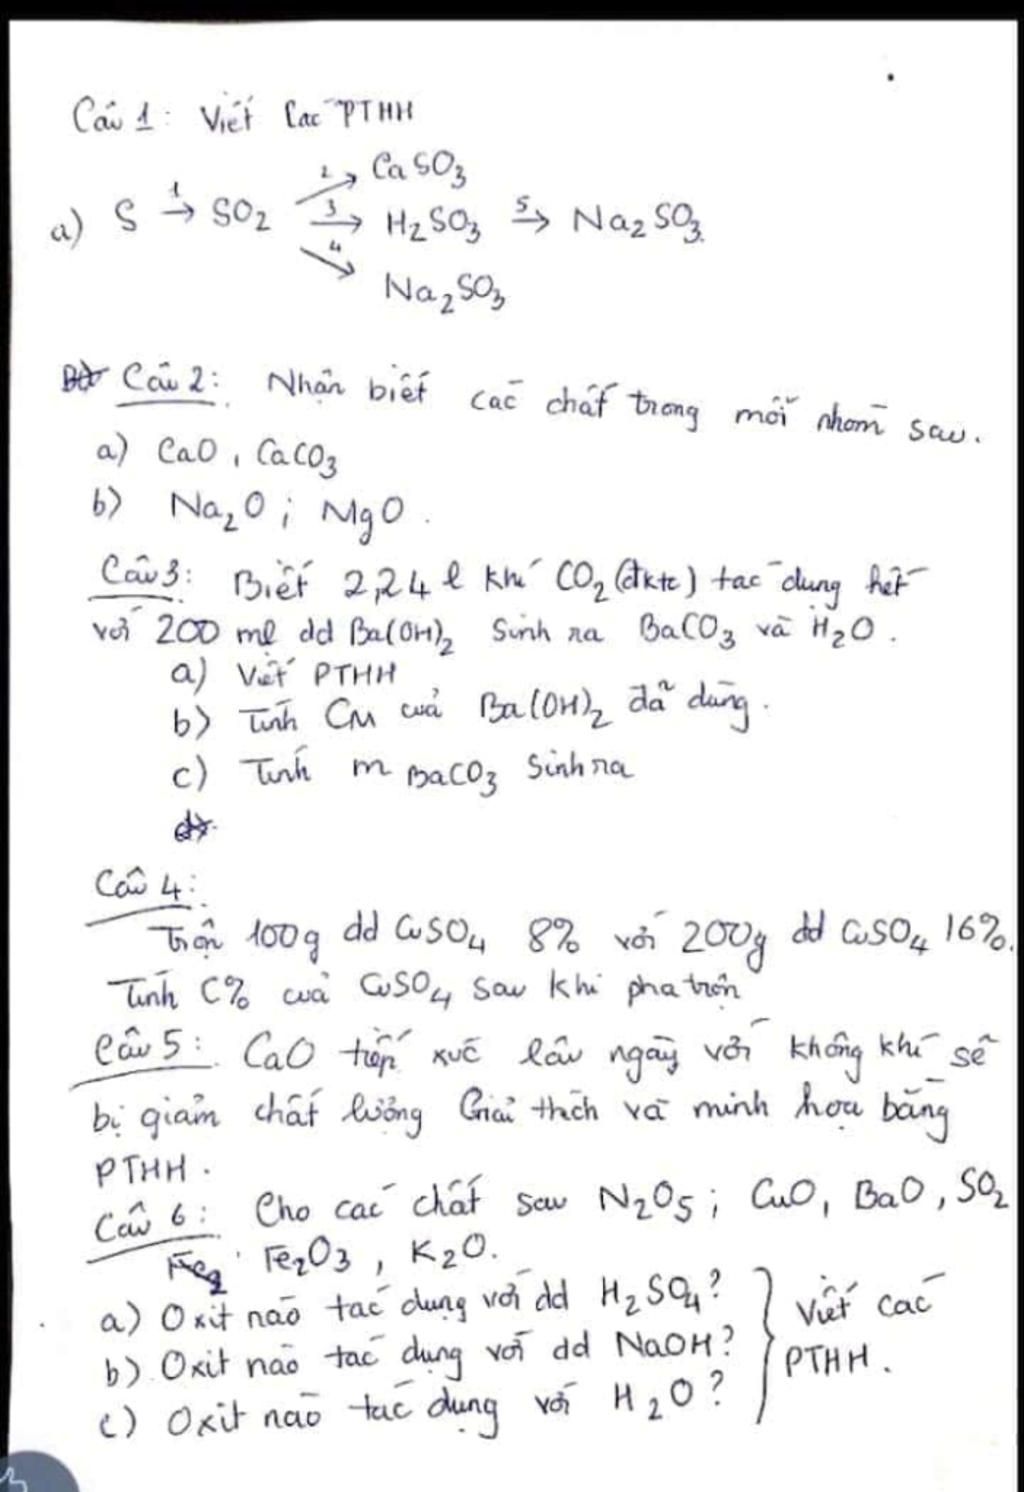 Câu 1: Viết các PTHH
a) S →1 SO2 →2 CaSO3
→3 H2SO3 →5 Na2SO3.
→4 Na2SO3
Câu 2: Nhận biết các chất trong mỗi nhóm sau.
a) CaO, CaCO3
b) Na2O; MgO.
Câu 3: Biết 2,24 l khí CO2 (đktc) tác dụng hết
với 200 ml dd Ba(OH)2 sinh ra BaCO3 và H2O.
a) Viết PTHH
b) Tính CM của Ba(OH)2 đã dùng.
c) Tính m BaCO3 sinh ra
Câu 4:
Trộn 100g dd CuSO4 8% với 200g dd CuSO4 16%.
Tính C% của CuSO4 sau khi pha trộn
Câu 5: CaO tiếp xúc lâu ngày với không khí sẽ
bị giảm chất lượng Giải thích và minh họa bằng
PTHH.
Câu 6: Cho các chất sau N2O5; CuO, BaO, SO2
Fe2O3, K2O.
a) Oxit nào tác dụng với dd H2SO4?
b) Oxit nào tác dụng với dd NaOH?
c) Oxit nào tác dụng với H2O?
Viết các
PTHH.